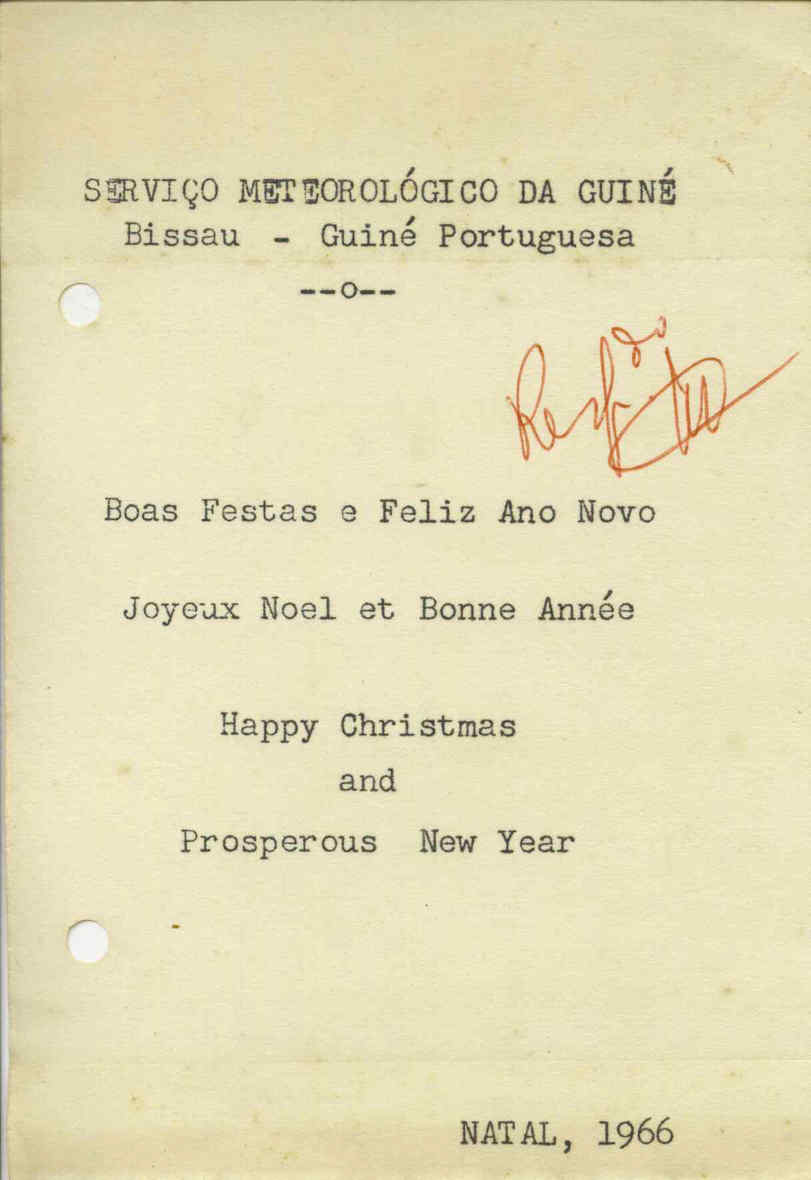 SERVIÇO METEOROLÓGICO DA GUINÉ
Bissau - Guiné Portuguesa
--o--
Boas Festas e Feliz Ano Novo
Joyeux Noel et Bonne Année
Happy Christmas
and
Prosperous New Year
NATAL, 1966